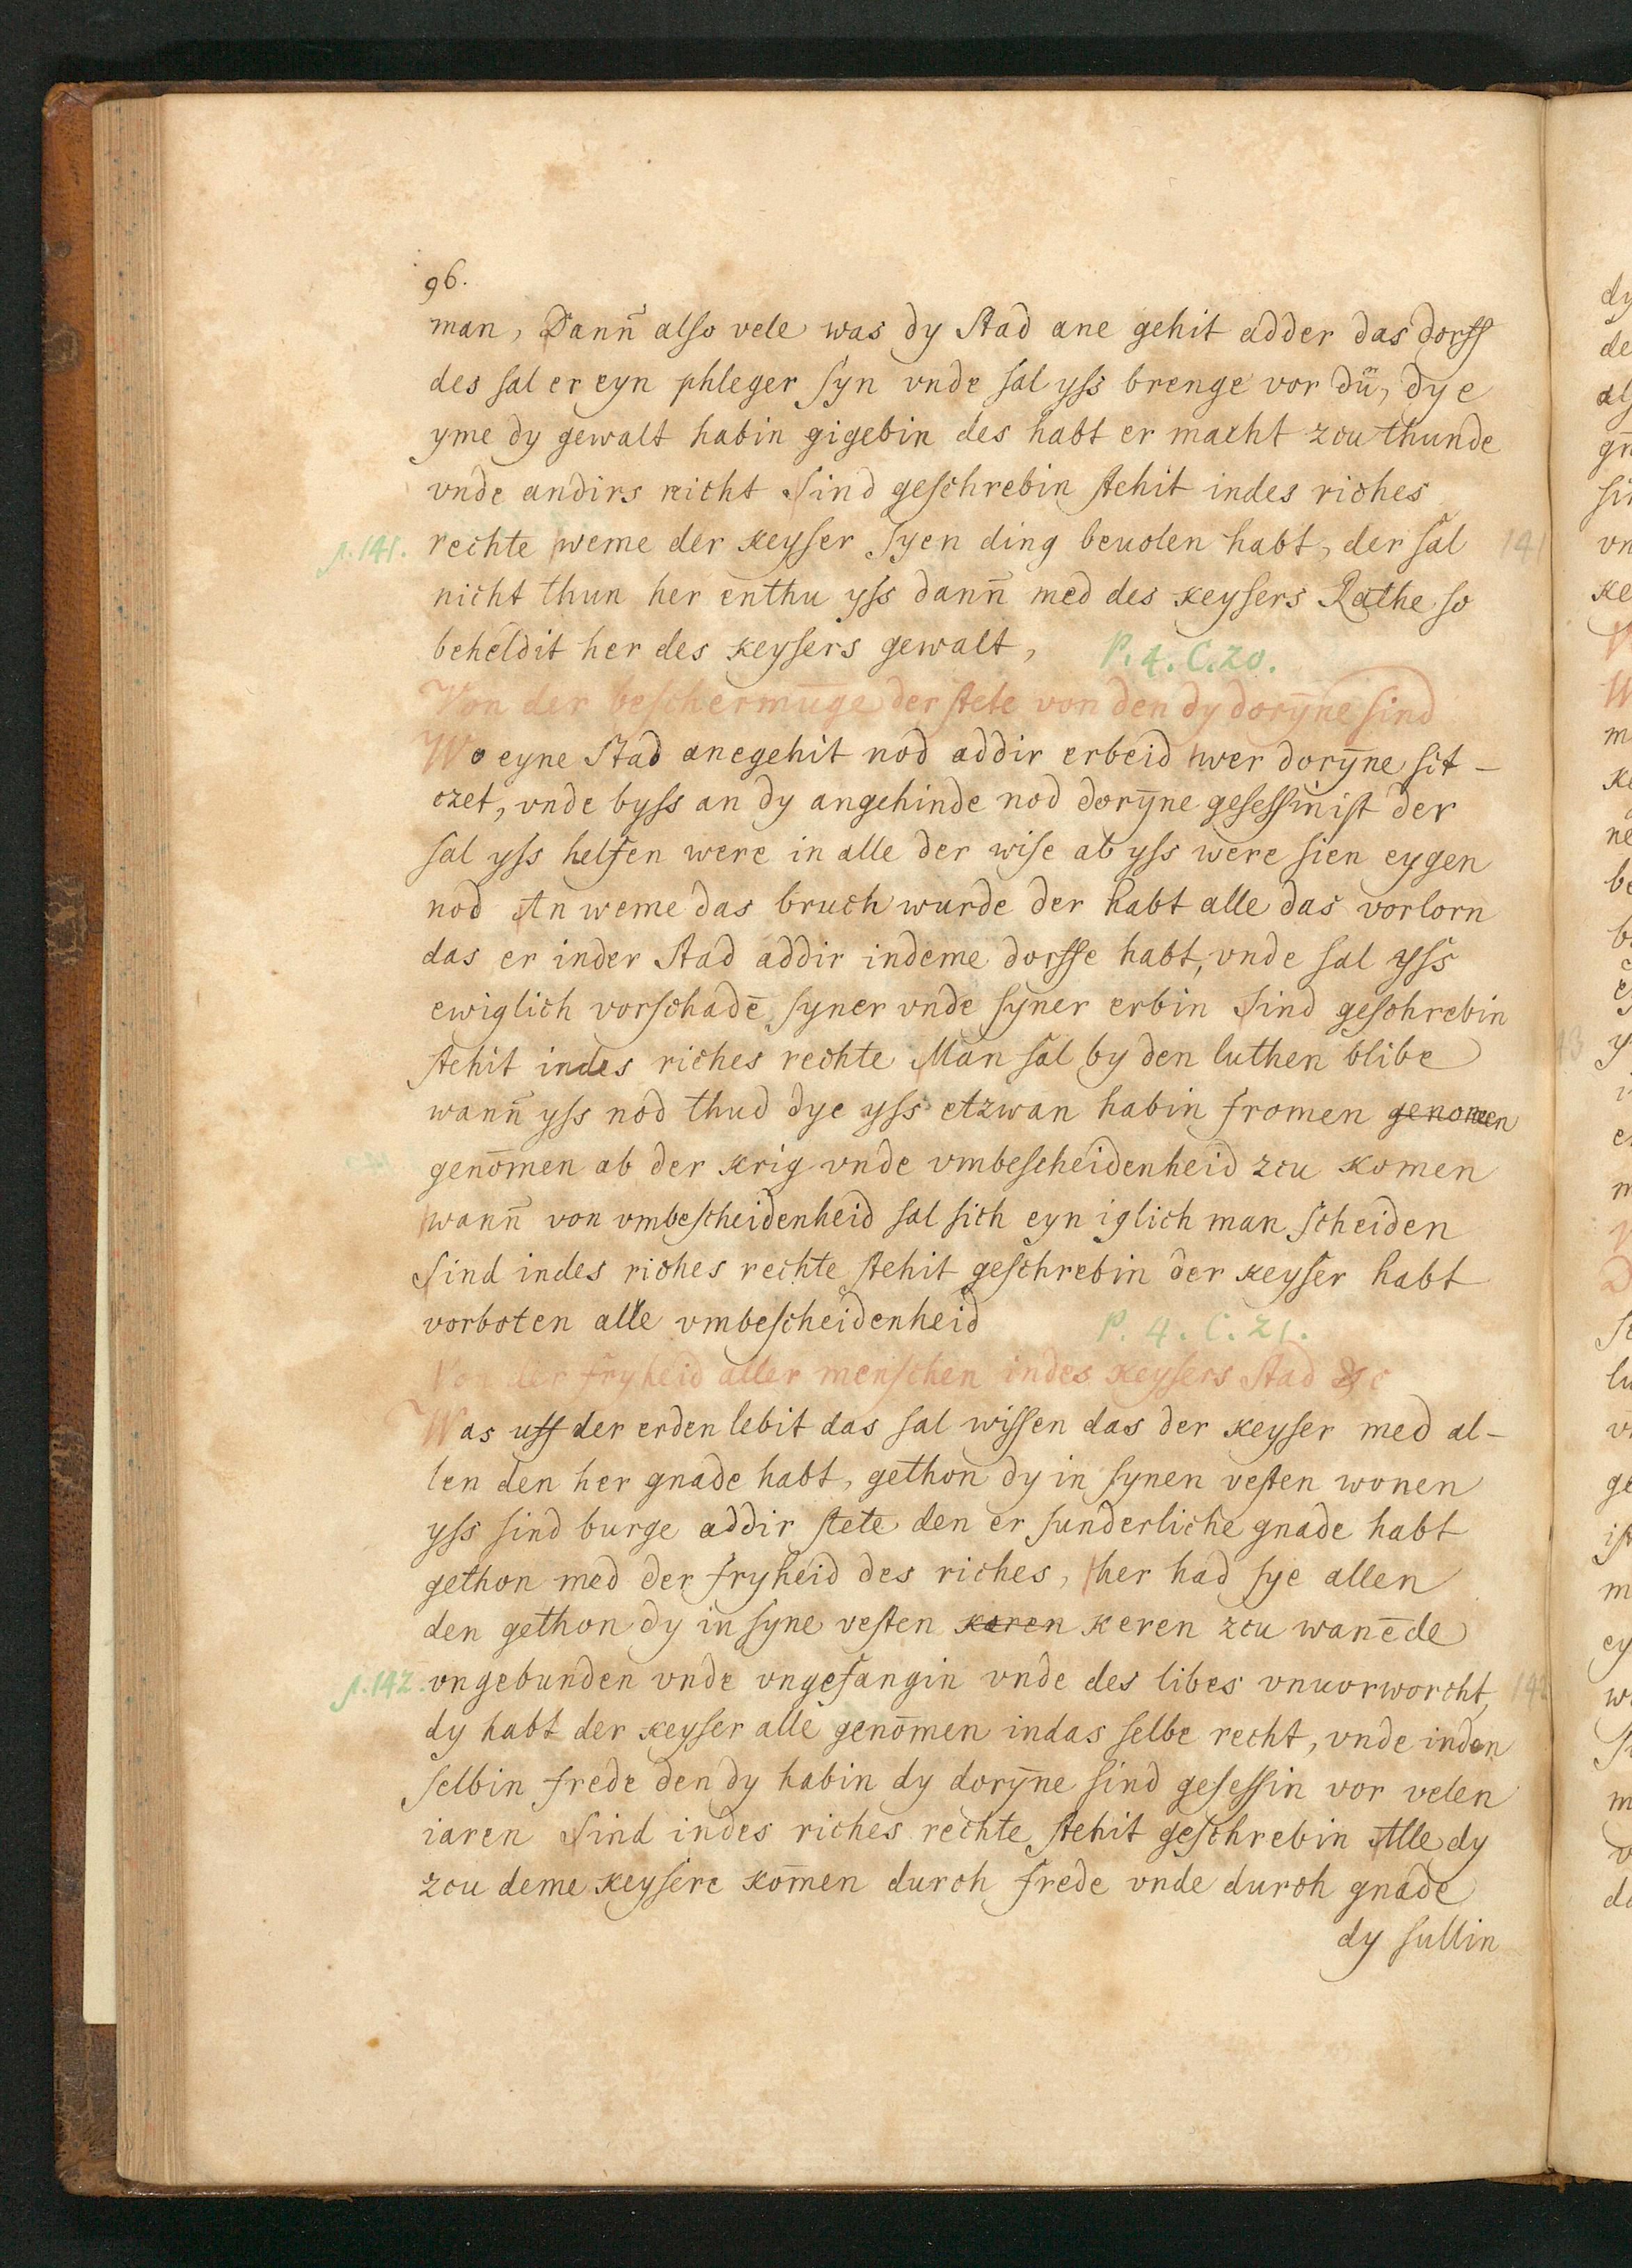 96.
man, Dann̄ also vele was dy Stad ane gehit adder das dorff
des sal er eyn phleger syn vnde sal yss brenge vor dü, dye
yme dy gewalt habin gigebin des habt er macht zcu thunde
vnde andirs nicht Sind geschrebin stehit indes riches
p. 141. rechte weme der keyser syen ding beuolen habt, der sal 141
nicht thun her enthu yss dann̄ med des keysers Rathe so
beheldit her des keysers gewalt, P. 4. C. 20.
Von der beschermūge der stete von den dy dorȳne sind
Wo eyne Stad anegehit nod addir erbeid wer dorȳne sit-
czet, vnde byss an dy angehinde nod dorȳne gesessin ist der
sal yss helfen were in alle der wise ab yss were sien eygen
nod An weme das bruch wurde der habt alle das vorlorn
das er inder Stad addir indeme dorffe habt, vnde sal yss
ewiglich vorschadē syner vnde syner erbin Sind geschrebin
stehit indes riches rechte Man sal by den luthen blibe
wann̄ yss nod thud dye yss etzwan habin fromen genomen
genōmen ab der krig vnde vmbescheidenheid zcu komen
wann̄ von vmbescheidenheid sal sich eyn iglich man scheiden
Sind indes riches rechte stehit geschrebin der keyser habt
vorboten alle vmbescheidenheid P. 4. C. 21.
Von der fryheid aller menschen indes keysers Stad
Was uff der erden lebit das sal wissen das der keyser med al-
len den her gnade habt, gethon dy in synen vesten wonen
yss sind burge addir stete den er sunderliche gnade habt
gethon med der fryheid des riches, her had sye allen
den gethon dy in syne vesten karen keren zcu wanēde
p. 142. vngebunden vnde vngefangin vnde des libes vnuorworcht, 142
dy habt der keyser alle genōmen indas selbe recht, vnde inden
selbin frede den dy habin dy dorȳne sind gesessin vor velen
iaren Sind indes riches rechte stehit geschrebin Alle dy
zcu deme keysere kom̄en durch frede vnde durch gnade
dy sullin